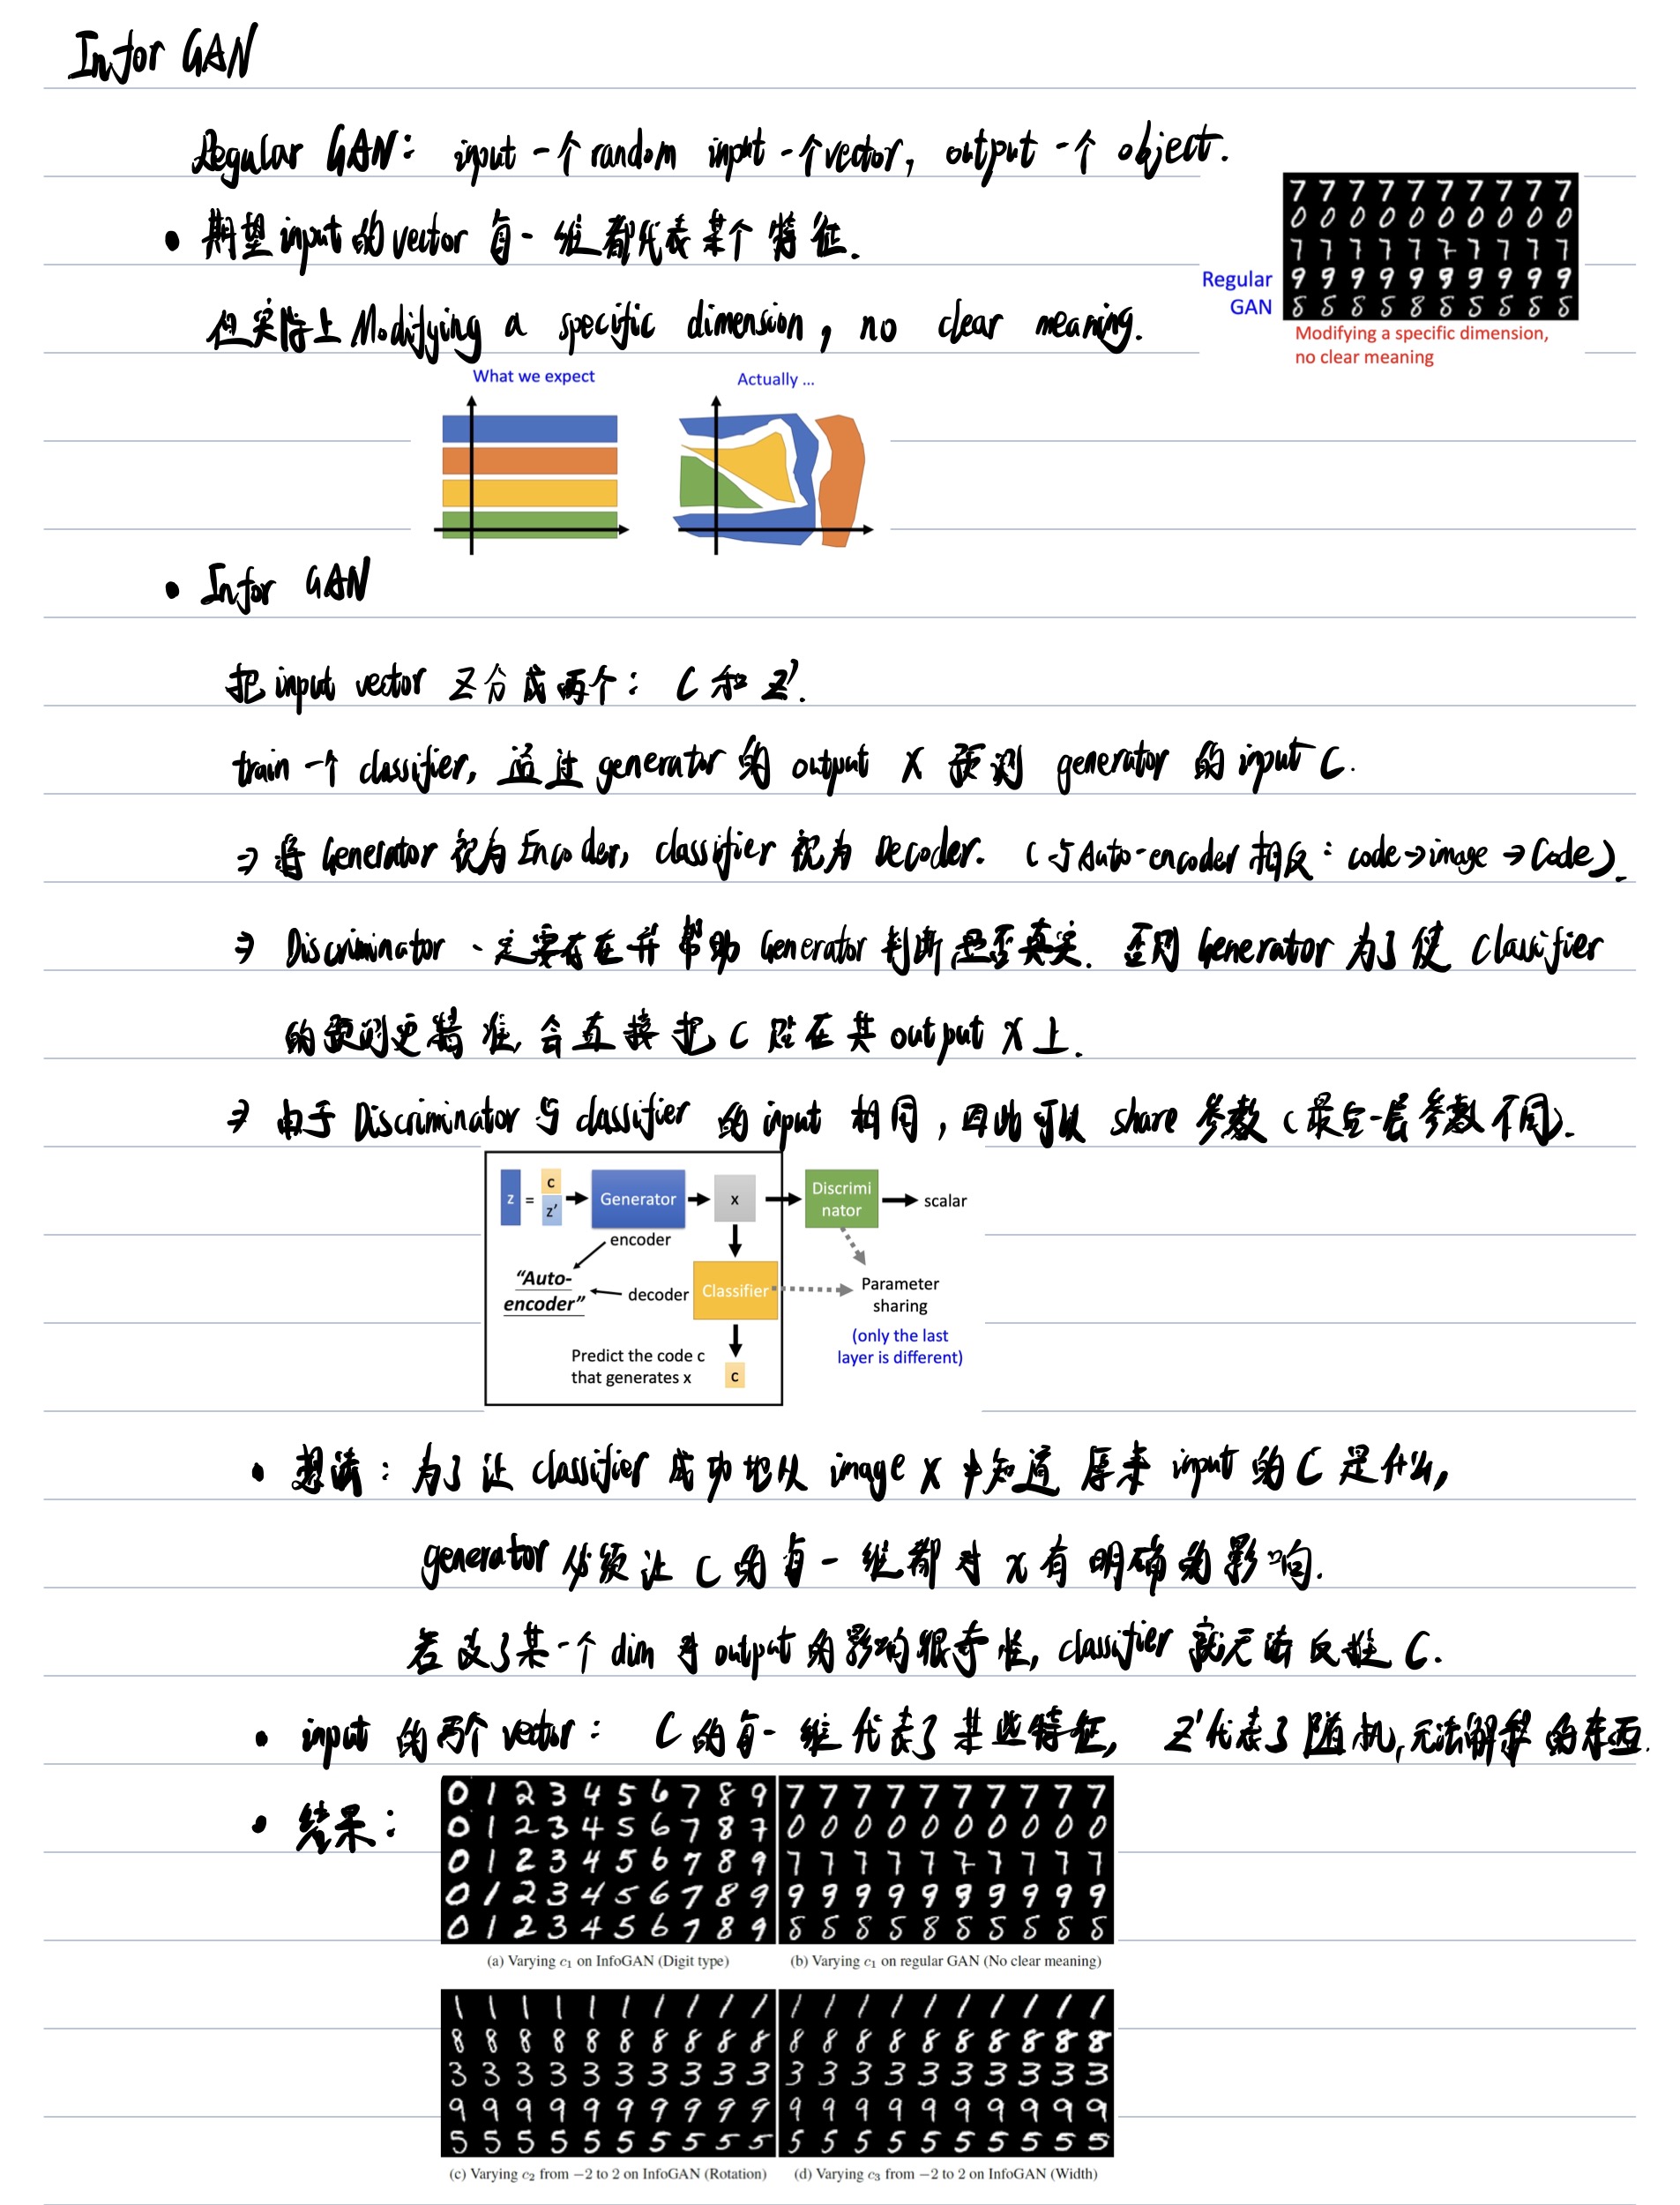 Infor GAN
Regular GAN: input 一个 random input 一个 vector, output 一个 object.
• 期望 input 的 vector 每一维都代表某个特征.
但实际上 Modifying a specific dimension, no clear meaning.
Regular
GAN
7 7 7 7 7 7 7 7 7 7
0 0 0 0 0 0 0 0 0 0
7 7 7 7 7 7 7 7 7 7
9 9 9 9 9 9 9 9 9 9
Modifying a specific dimension,
no clear meaning
What we expect
Actually ...
• Infor GAN
把 input vector Z 分成两个: C 和 Z'.
train 一个 classifier, 通过 generator 的 output X 预测 generator 的 input C.
⇒ 将 Generator 视为 Encoder, classifier 视为 Decoder. (与 Auto-encoder 相反: code→image→Code).
⇒ Discriminator 一定要存在并帮助 Generator 判断是否真实. 否则 Generator 为了使 Classifier
的预测更精准, 会直接把 C 贴在其 output X 上.
⇒ 由于 Discriminator 与 classifier 的 input 相同, 因此可以 share 参数 (最后一层参数不同).
z = c z'
Generator
x
Discrimi
nator
scalar
encoder
"Auto-
encoder"
decoder
Classifier
Parameter
sharing
(only the last
layer is different)
Predict the code c
that generates x
c
• 想法: 为了让 classifier 成功地从 image X 中知道原来 input 的 C 是什么,
generator 必须让 C 的每一维都对 x 有明确的影响.
若改了某一个 dim 对 output 的影响很奇怪, classifier 就无法反推 C.
• input 的两个 vector: C 的每一维代表了某些特征, Z' 代表了随机, 无法解释的东西.
• 结果:
0 1 2 3 4 5 6 7 8 9
0 1 2 3 4 5 6 7 8 7
0 1 2 3 4 5 6 7 8 9
0 1 2 3 4 5 6 7 8 9
0 1 2 3 4 5 6 7 8 9
7 7 7 7 7 7 7 7 7 7
0 0 0 0 0 0 0 0 0 0
7 7 7 7 7 7 7 7 7 7
9 9 9 9 9 9 9 9 9 9
(a) Varying c₁ on InfoGAN (Digit type)
(b) Varying c₁ on regular GAN (No clear meaning)
1 1 1 1 1 1 1 1 1 1
8 8 8 8 8 8 8 8 8 8
3 3 3 3 3 3 3 3 3 3
9 9 9 9 9 9 9 9 9 9
5 5 5 5 5 5 5 5 5 5
1 1 1 1 1 1 1 1 1 1
8 8 8 8 8 8 8 8 8 8
3 3 3 3 3 3 3 3 3 3
9 9 9 9 9 9 9 9 9 9
5 5 5 5 5 5 5 5 5 5
(c) Varying c₂ from −2 to 2 on InfoGAN (Rotation)
(d) Varying c₃ from −2 to 2 on InfoGAN (Width)